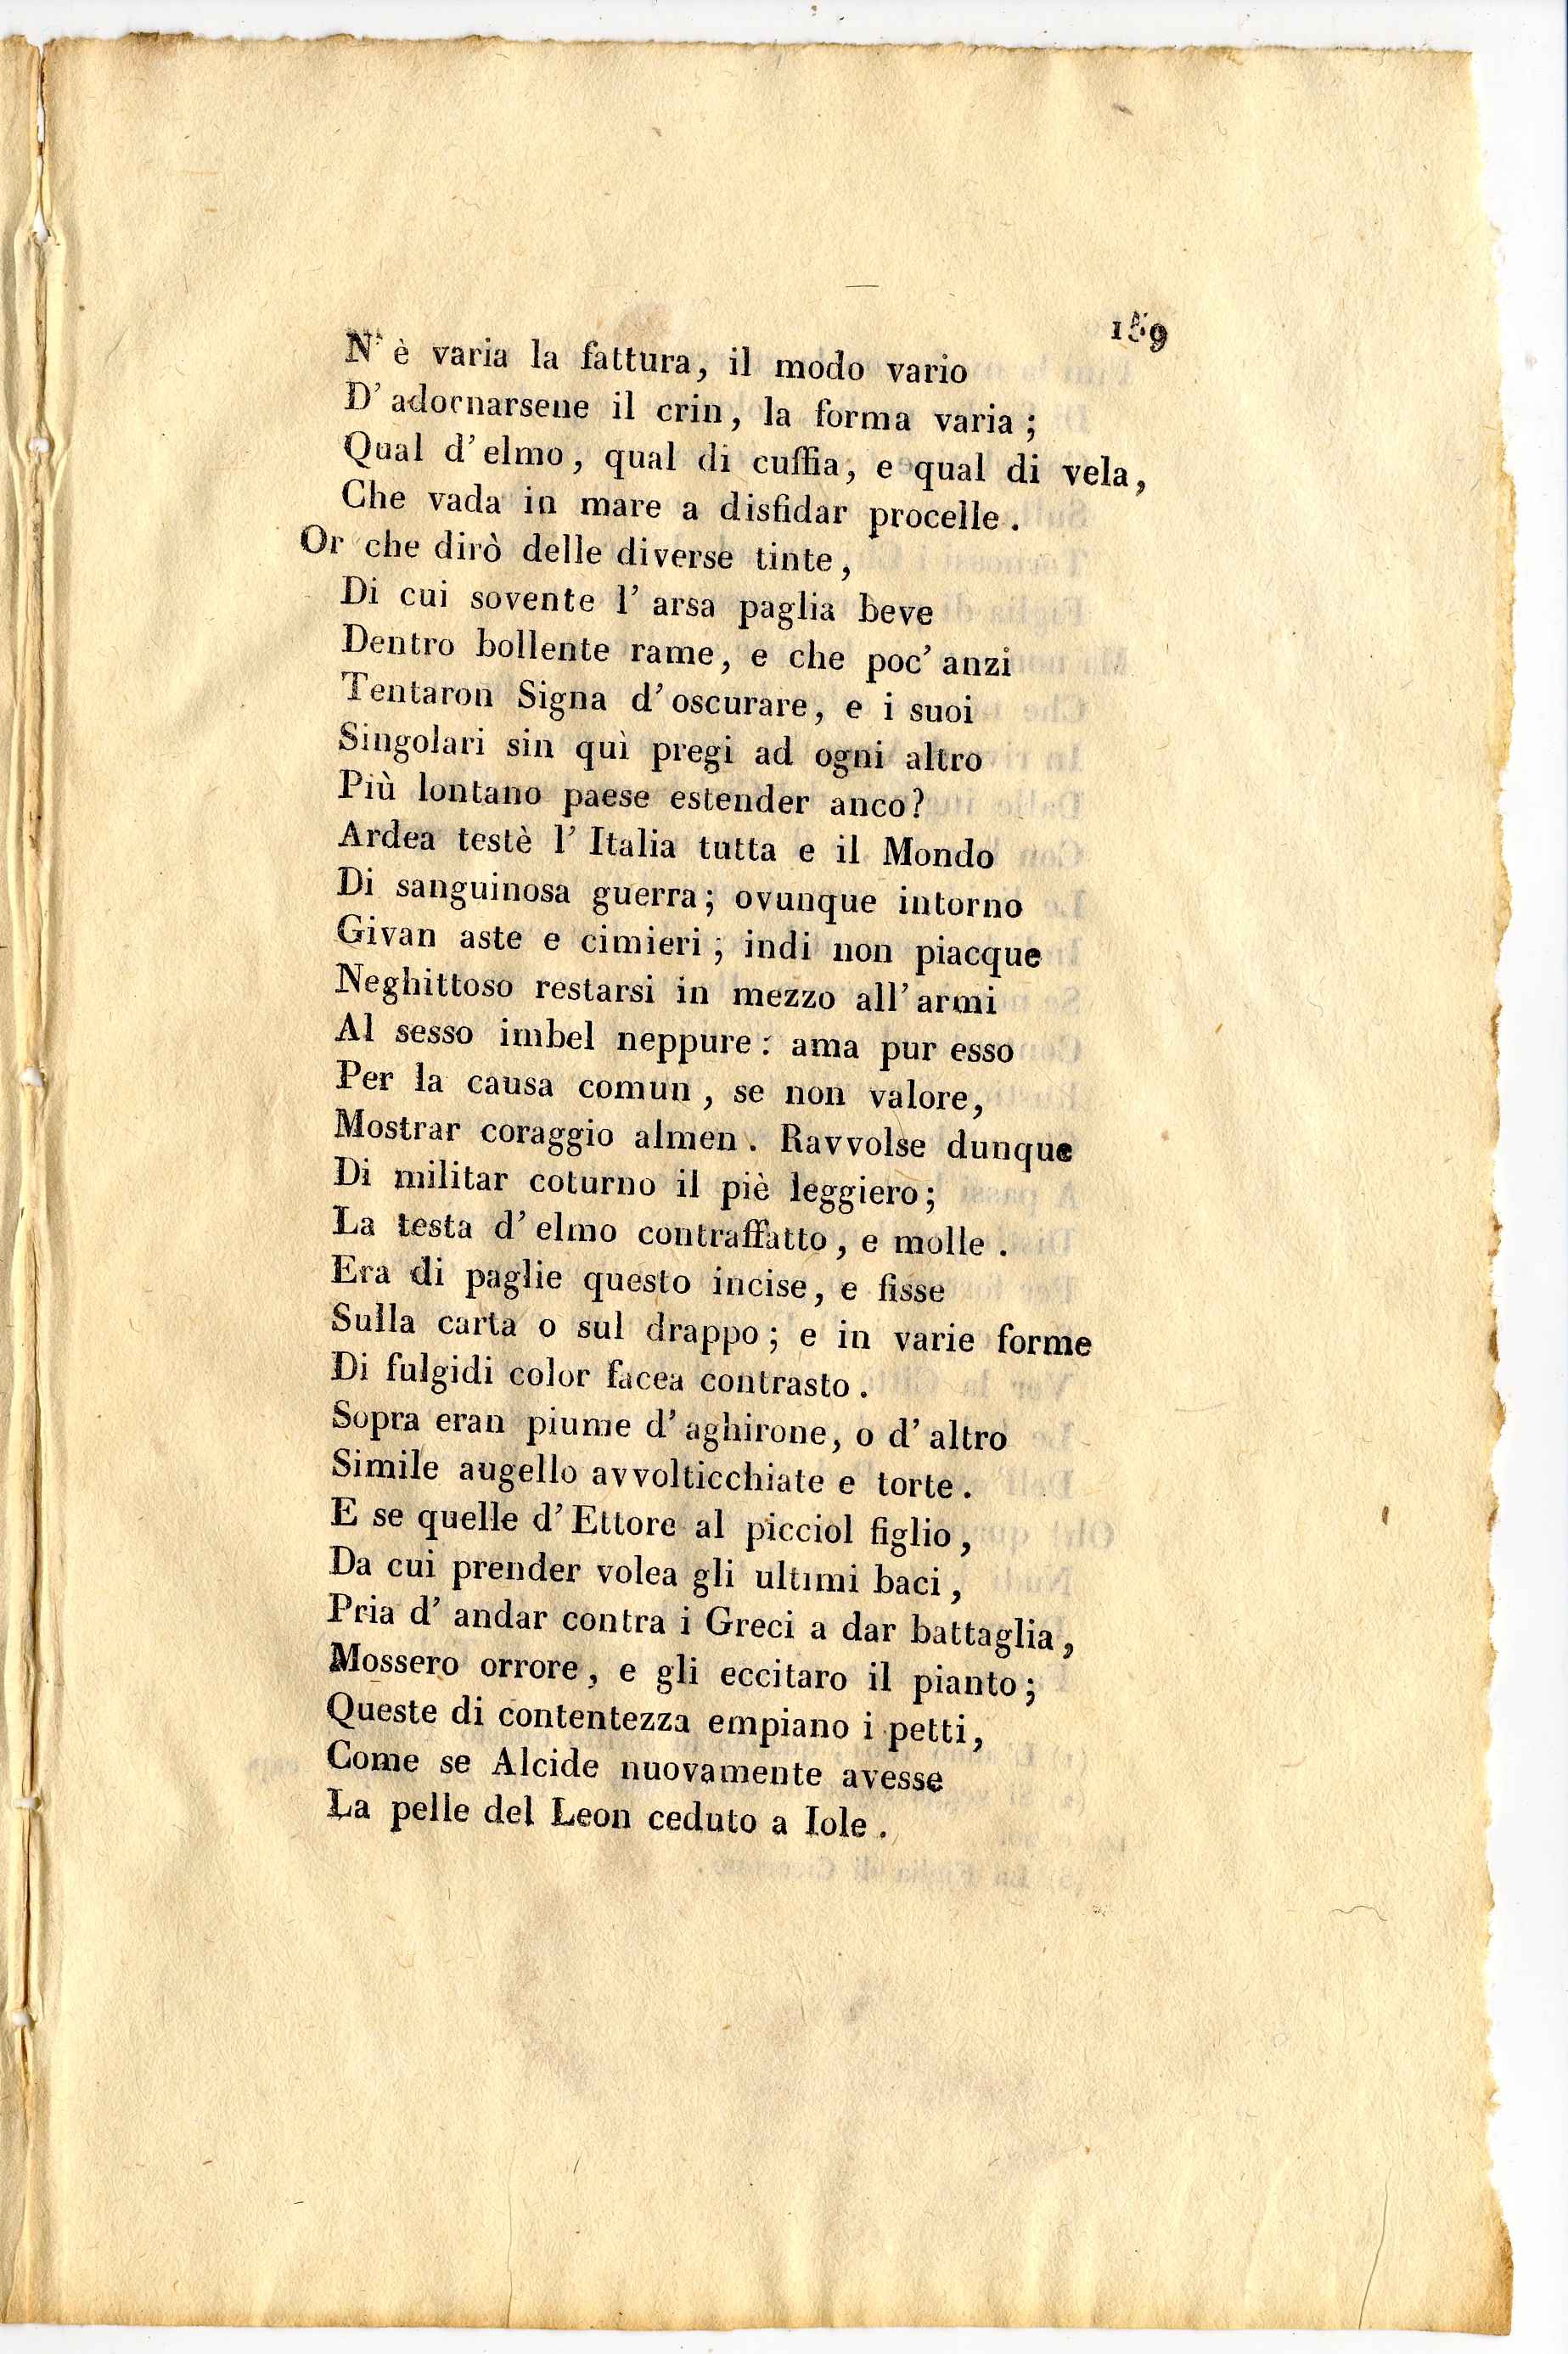 159
N' è varia la fattura, il modo vario
D' adornarsene il crin, la forma varia;
Qual d' elmo, qual di cuffia, e qual di vela,
Che vada in mare a disfidar procelle.
Or che dirò delle diverse tinte,
Di cui sovente l' arsa paglia beve
Dentro bollente rame, e che poc' anzi
Tentaron Signa d' oscurare, e i suoi
Singolari sin quì pregi ad ogni altro
Più lontano paese estender anco?
Ardea testè l' Italia tutta e il Mondo
Di sanguinosa guerra; ovunque intorno
Givan aste e cimieri; indi non piacque
Neghittoso restarsi in mezzo all' armi
Al sesso imbel neppure: ama pur esso
Per la causa comun, se non valore,
Mostrar coraggio almen. Ravvolse dunque
Di militar coturno il piè leggiero;
La testa d' elmo contraffatto, e molle.
Era di paglie questo incise, e fisse
Sulla carta o sul drappo; e in varie forme
Di fulgidi color facea contrasto.
Sopra eran piume d' aghirone, o d' altro
Simile augello avvolticchiate e torte.
E se quelle d' Ettore al picciol figlio,
Da cui prender volea gli ultimi baci,
Pria d' andar contra i Greci a dar battaglia,
Mossero orrore, e gli eccitaro il pianto;
Queste di contentezza empiano i petti,
Come se Alcide nuovamente avesse
La pelle del Leon ceduto a Iole.